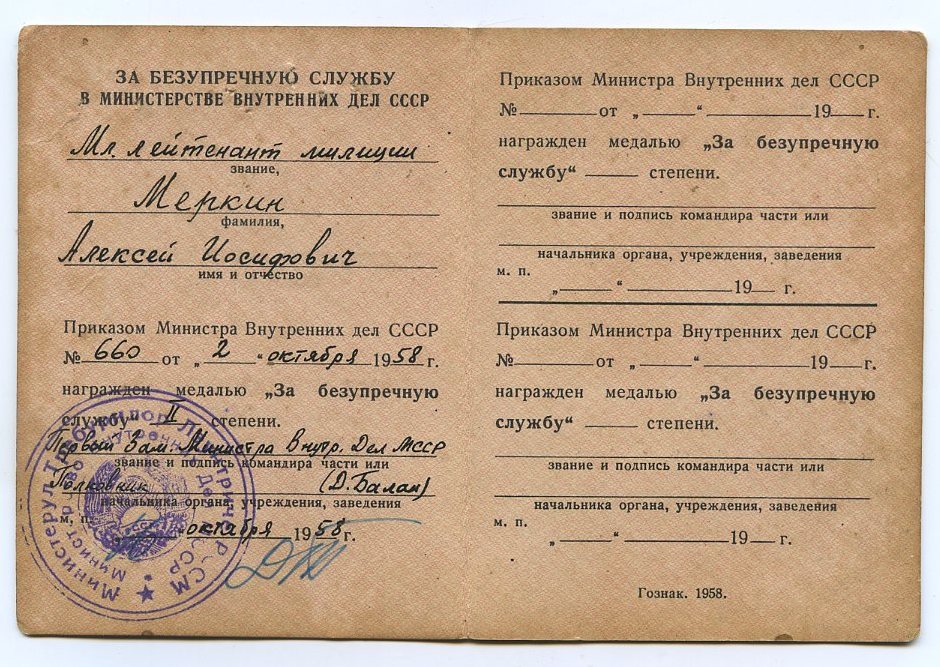 ЗА БЕЗУПРЕЧНУЮ СЛУЖБУ
В МИНИСТЕРСТВЕ ВНУТРЕННИХ ДЕЛ СССР
Мл. лейтенант милиции
звание,
Меркин
фамилия,
Алексей Иосифович
имя и отчество
Приказом Министра Внутренних дел СССР
№ 660 от „ 2 “ октября 1958 г.
награжден медалью „За безупречную
службу“ II степени.
Первый Зам. Министра Внутр. Дел МССР
звание и подпись командира части или
Полковник (Д. Балан)
начальника органа, учреждения, заведения
м. п.
октября 1958 г.
Приказом Министра Внутренних дел СССР
№ от „ “ 19 г.
награжден медалью „За безупречную
службу“ степени.
звание и подпись командира части или
начальника органа, учреждения, заведения
м. п.
„ “ 19 г.
Приказом Министра Внутренних дел СССР
№ от „ “ 19 г.
награжден медалью „За безупречную
службу“ степени.
звание и подпись командира части или
начальника органа, учреждения, заведения
м. п.
„ “ 19 г.
Гознак. 1958.